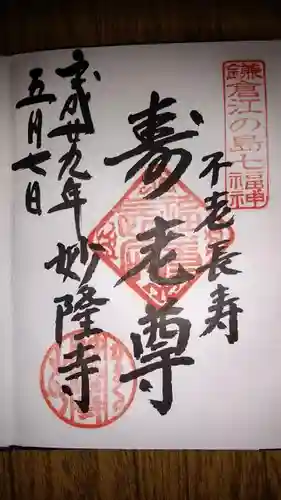 鎌倉江の島七福神
不老長寿
寿老尊
妙隆寺
平成廿九年
五月七日